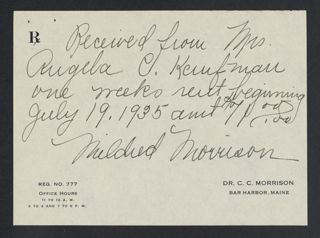 ℞ Received from Mrs.
Angela C. Kaufman
one weeks rent beginning
July 19, 1935 amt
Mildred Morrison
REG. NO. 777
OFFICE HOURS
11 TO 12 A. M.
2 TO 4 AND 7 TO 8 P. M.
DR. C. C. MORRISON
BAR HARBOR, MAINE